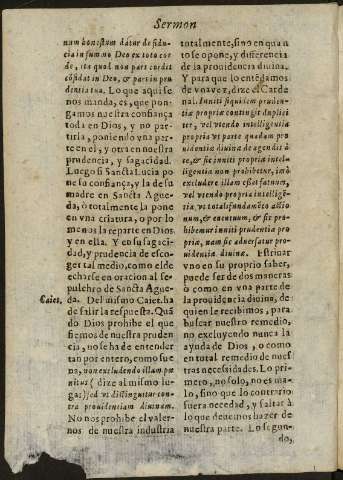 Sermon
num honestum datur de fidu-
cia in summo Deo ex toto cor
de, ita quod non pars cordis
cõsidat in Deo, & pars in pru
dentia tua. Lo que aqui se
nos manda, es, que pon-
gamos nuestra confiança
toda en Dios, y no par-
tirla, poniendo vna par-
te en el, y otra en nuestra
prudencia, y sagacidad.
Luego si Sancta Lucia po
ne su confiança, y la de su
madre en Sancta Ague-
da, ò totalmente la pone
en vna criatura, o por lo
menos la reparte en Dios
y en ella. Y en su sagaci-
dad, y prudencia de esco-
ger tal medio, como el de
echarse en oracion al se-
pulchro de Sancta Ague-
da. Del mismo Caiet. ha
Caiet.
de salir la respuesta. Quã
do Dios prohibe el que
fiemos de nuestra pruden
cia, no se ha de entender
tan por entero, como sue
na, non excludendo illam pe
nitus (dize al mismo lu-
gar) sed vt distinguitur con-
tra prouidentiam diuinam.
No nos prohibe el valer-
nos de nuestra industria
totalmente, sino en quan
to se opone, y differencia
de la prouidencia diuina.
Y para que lo entẽdamos
de vna vez, dize el Carde
nal. Inniti siquidem pruden-
tiæ propriæ contingit duplici
ter, vel vtendo intelligentia
propria vt parte quadam pro
uidentiæ diuinæ de agendis à
te, & sic inniti propriæ intel-
ligentiæ non prohibetur, imò
excludere illam esset fatuum,
vel vtendo propria intelligẽ-
tia, vt totalfundamẽto actio
num, & euentuum, & sic pro-
hibemur inniti prudentiæ pro
priæ, nam sic aduersatur pro-
uidentiæ diuinæ. Estriuar
vno en su proprio saber,
puede ser de dos maneras
ò como en vna parte de
la prouidencia diuina, de
quien le recibimos, para
buscar nuestro remedio,
no excluyendo nunca la
ayuda de Dios, o como
en total remedio de nues
tras necessidades. Lo pri-
mero, no solo, no es ma-
lo, sino que lo contrario
fuera necedad, y faltar à
lo que deuemos hazer de
nuestra parte. Lo segun-
do,